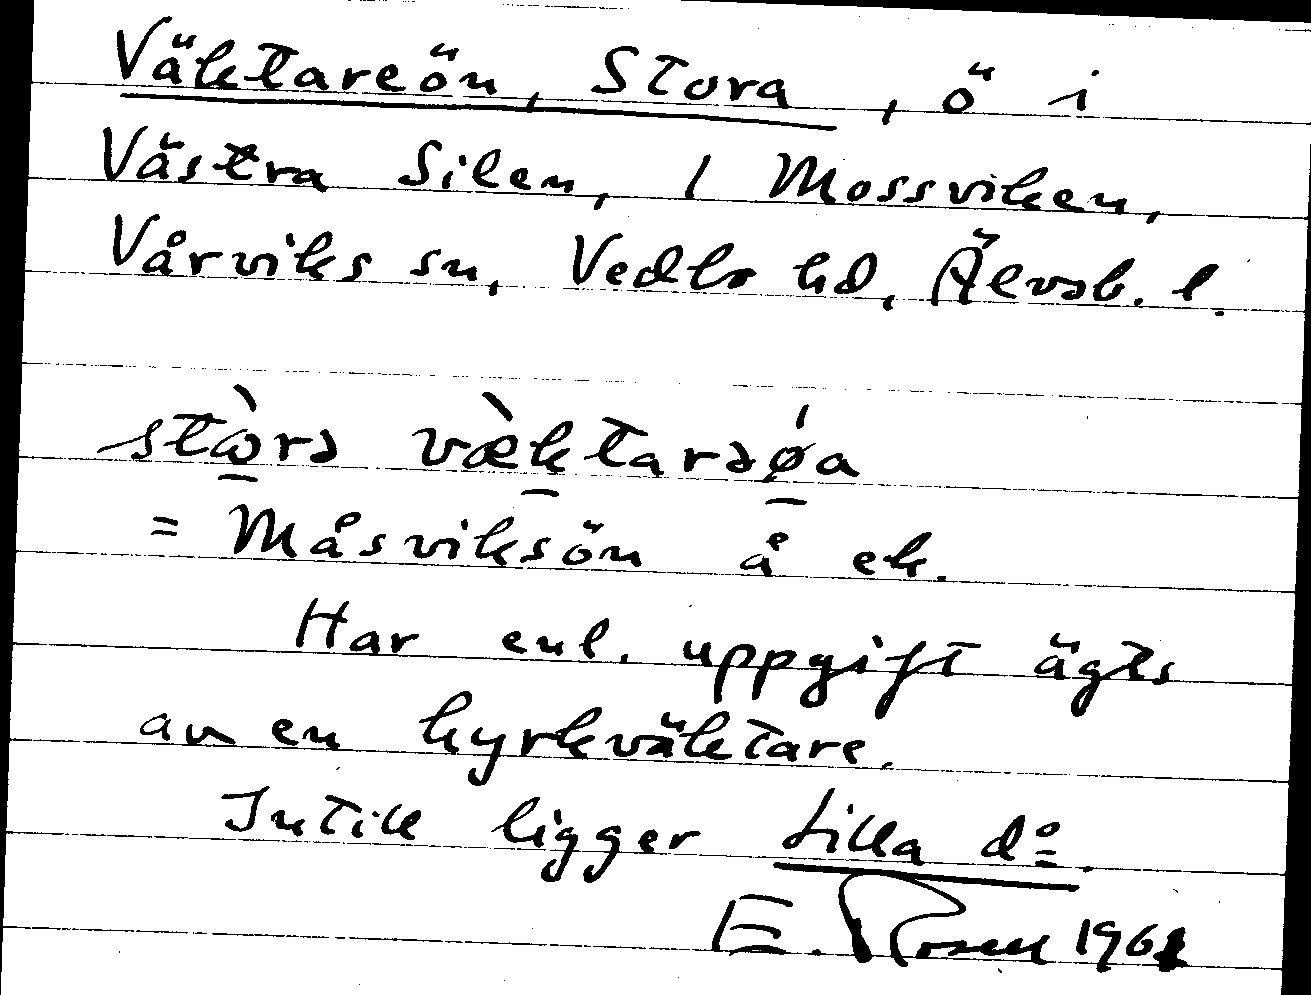 Väktareön, Stora, ö i
Västra Silen, i Mossviken,
Vårviks sn, Vedbo hd, Älvsb. l.
stὼrə væ̀ktarəǿa
= Måsviksön å ek.
Har enl. uppgift ägts
av en kyrkväktare.
Intill ligger Lilla do.
E. Rosell 1961